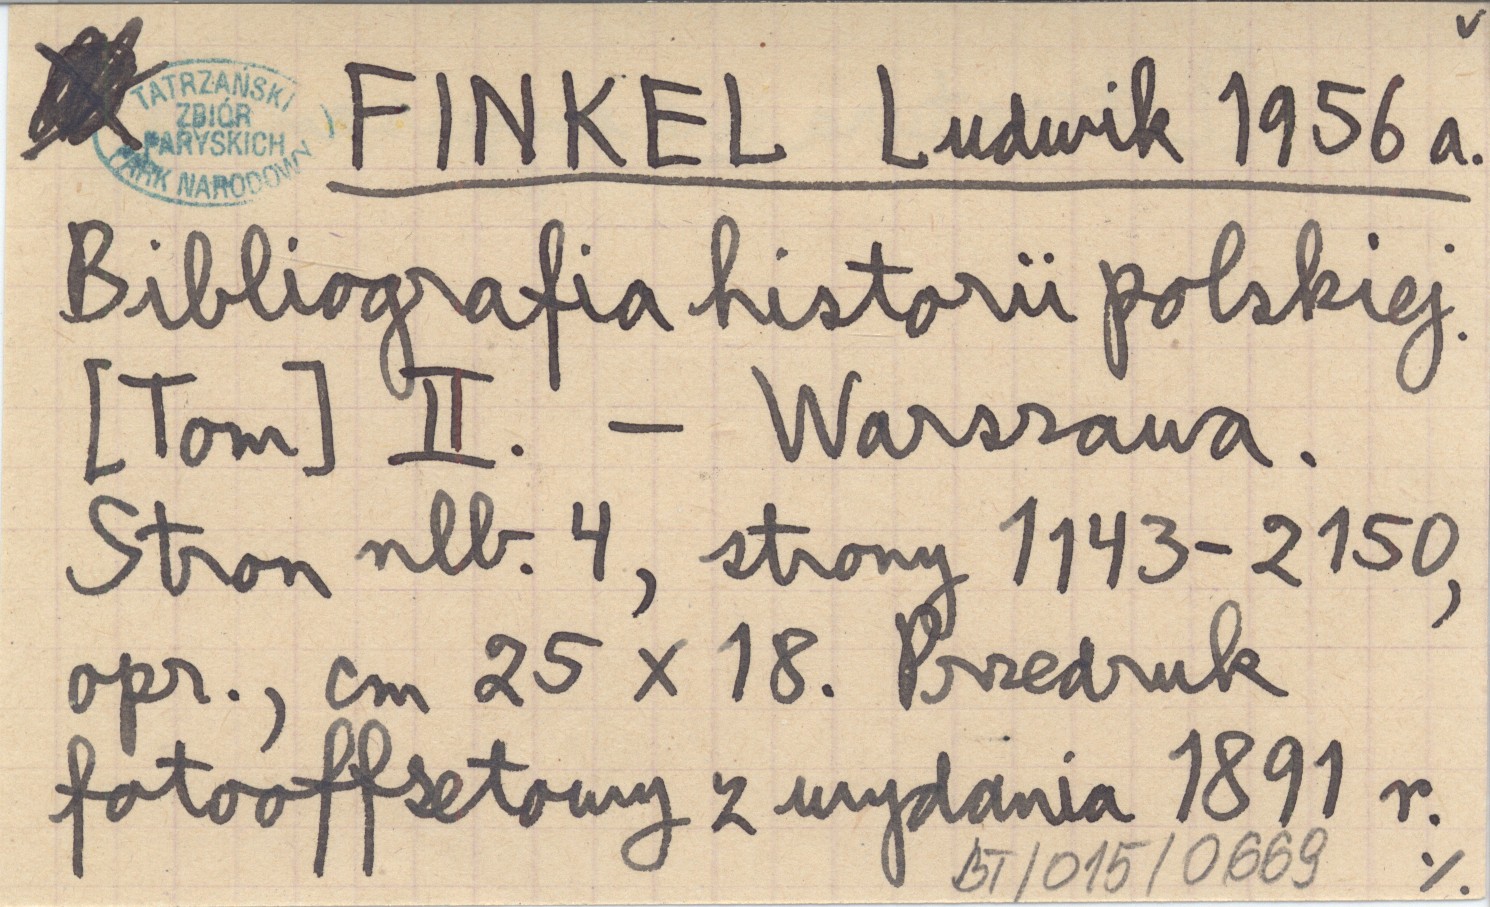 v
TATRZAŃSKI
ZBIÓR
PARYSKICH
PARK NARODOWY
FINKEL Ludwik 1956 a.
Bibliografia historii polskiej.
[Tom] II. – Warszawa.
Stron nlb. 4, strony 1143-2150,
opr., cm 25 x 18. Przedruk
fotooffsetowy z wydania 1891 r.
BT/015/0669
./.